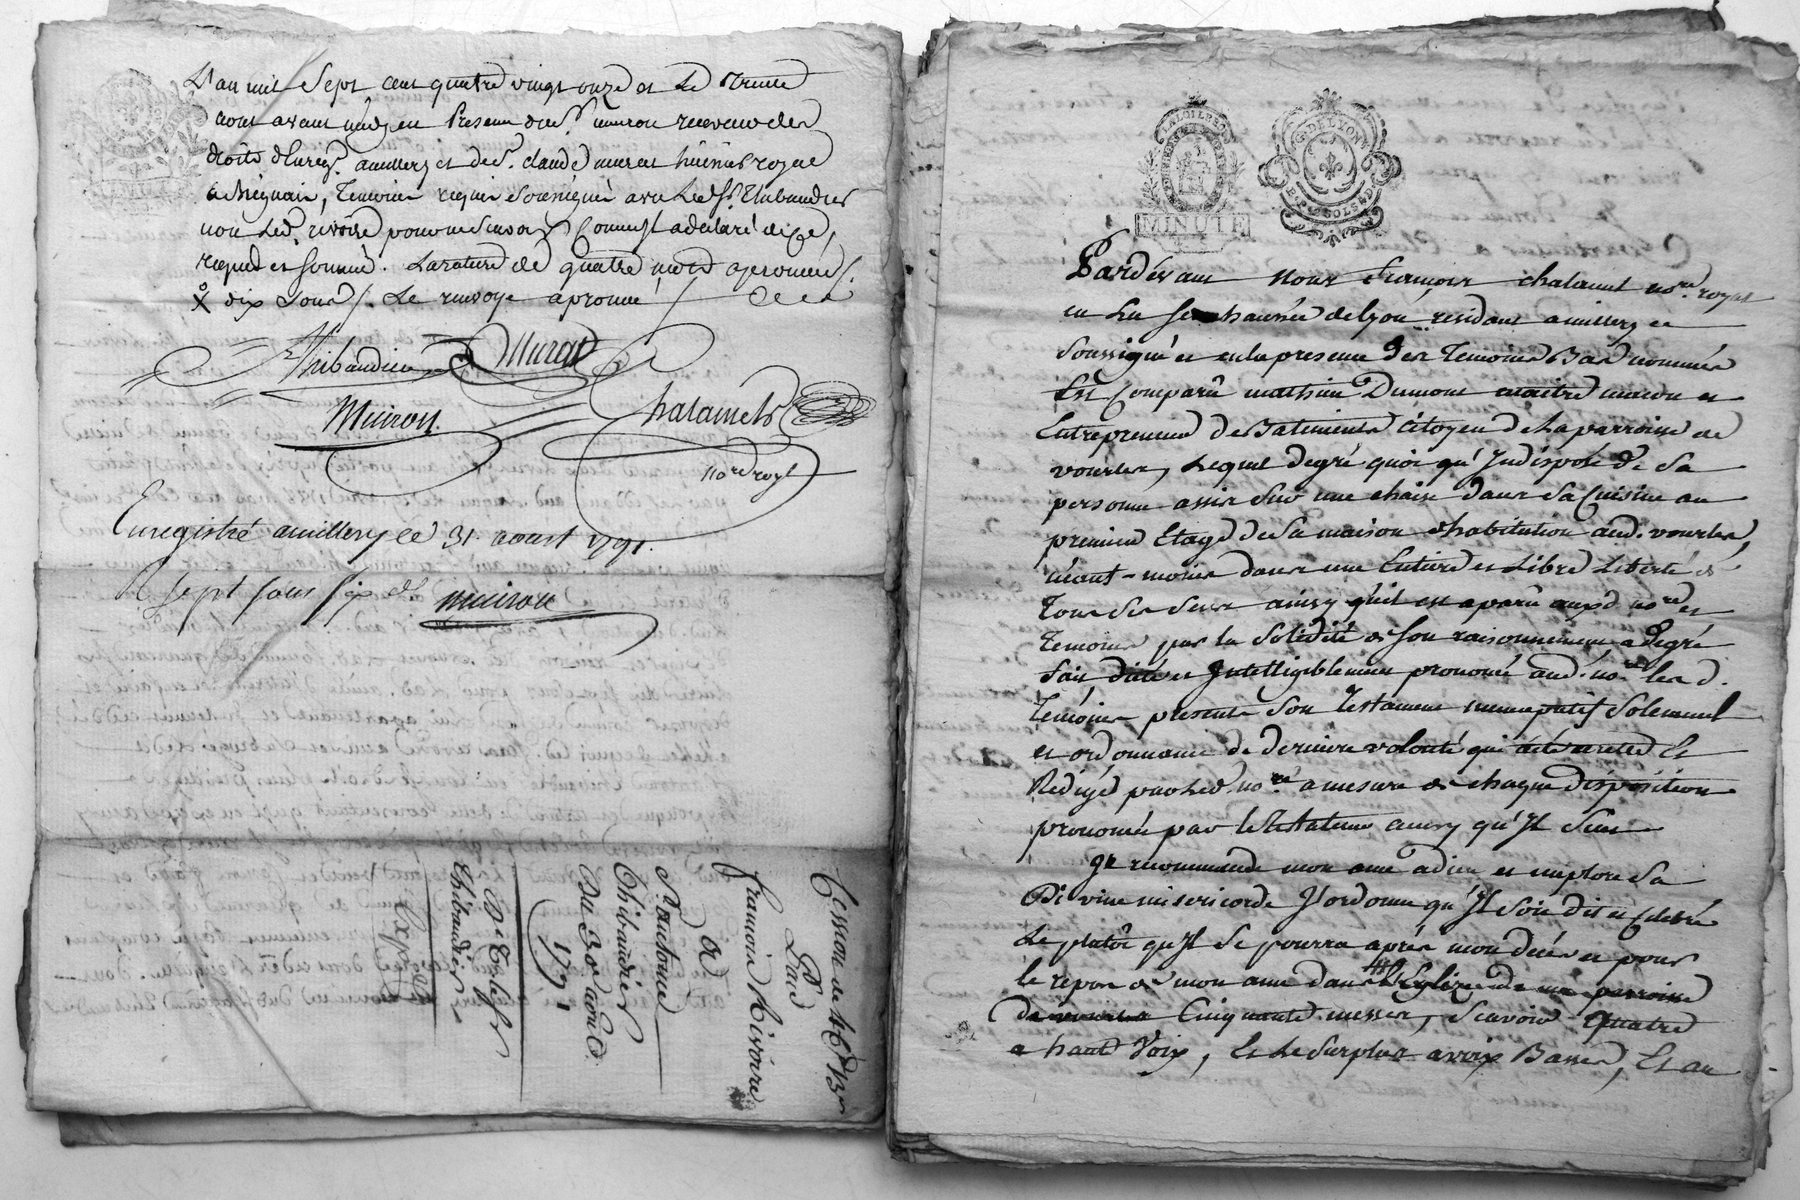 L'an mil Sept Cent quatre vingt onze et Le Trente
aout avant midy en Presence du Sr. muiron receveur des
droits d'Enregt. amillery et de Sr. claude murat huissier royal
a Brignais, Temoins requis Soussignés avec Led. Sr. Thibaudier
non Led. rivoire pour ne Scavoir Comme Il a declaré de Ce,
requis et Sommé. La rature de quatre mots aprouvée /.
dix Sous /. Le renvoye aprouvé /
Thibaudier Murat
Muiron. Chalamel
no.re royl
Enregistré amillery le 31. aoust 1791.
R sept sous six d.
muiron
Cession de 46# 13s
Par
francois Rivoire
a
Sr antoine
Thibaudier
Du 30 aout
1791
Expé
thibaudier
LA LOI LE ROI
MINUTE
G. DE LYON
Pardevant Nous francois chalamel no.re royal
en La Senechaussée de Lyon, residant amillery
Soussigné et en la presence des Temoins Bas nommés
Est Comparu mathieu Dumont maitre macon et
Entrepreneur de Batiments Citoyen de La parroisse de
vourles, Lequel de gré quoi qu'Indisposé de Sa
personne assis Sur une chaise dans Sa Cuisine au
premier Etage de Sa maison d'habitation aud. vourles,
néant-moins dans une Entiere et Libre Liberté de
Tous Ses Sens ainsy qu'il est aparu auxd. no.re et
Temoins par la Solidité de Son raisonnement, a de gré
fait dicté et Intelligiblement prononcé aud. no.re les d.
Temoins presents Son Testament nuncupatif Solemnel
et ordonnance de derniere volonté qui a été
Redigé par Led. no.re a mesure de chaque disposition
prononcée par le Testateur ainsy qu'Il Suit
Je recommande mon ame a dieu et implore Sa
Divine misericorde J'ordonne qu'Il Soit dit et Celebré
Le plutôt qu'Il Se pourra après mon décés et pour
le repos de mon ame dans L'Eglize de ma parroisse
de vourles Cinquante messes, Scavoir Quatre
a haute Voix, Et Le Surplus a voix Basse, Et au